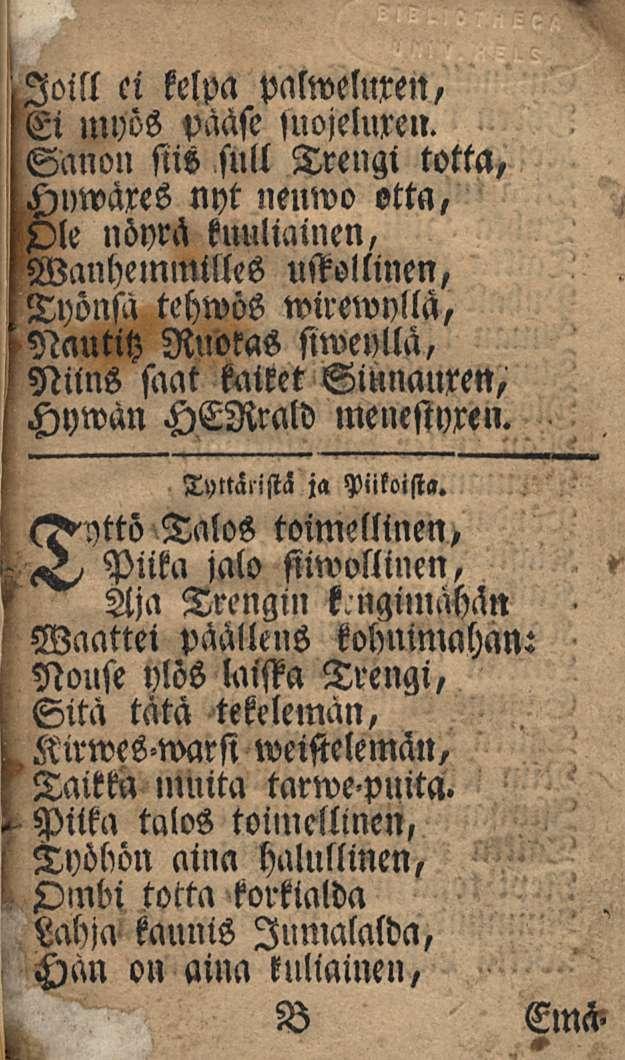 BIBLIOTHECA
UNIV. HELS.
Joill ei kelpa palweluxen,
Ei myös pääse suojeluxen.
Sanon siis sull Trengi totta,
Hywäxes nyt neuwo otta,
Ole nöyrä kuuliainen,
Wanhemmilles uskollinen,
Työnsä tehwös wirewyllä,
Nautitz Ruokas siweyllä,
Niins saat kaiket Siunauxen,
Hywän HERrald menestyxen.
Tyttäristä ja Piikoista.
Tyttö Talos toimellinen,
Piika jalo siiwollinen,
Aja Trengin kengimähän
Waattei päällens kohuimahan:
Nouse ylös laiska Trengi,
Sitä tätä tekelemän,
Kirwes-warsi weistelemän,
Taikka muita tarwe-puita.
Piika talos toimellinen,
Työhön aina halullinen,
Ombi totta korkialda
Lahja kaunis Jumalalda,
Hän on aina kuliainen,
B Emä-